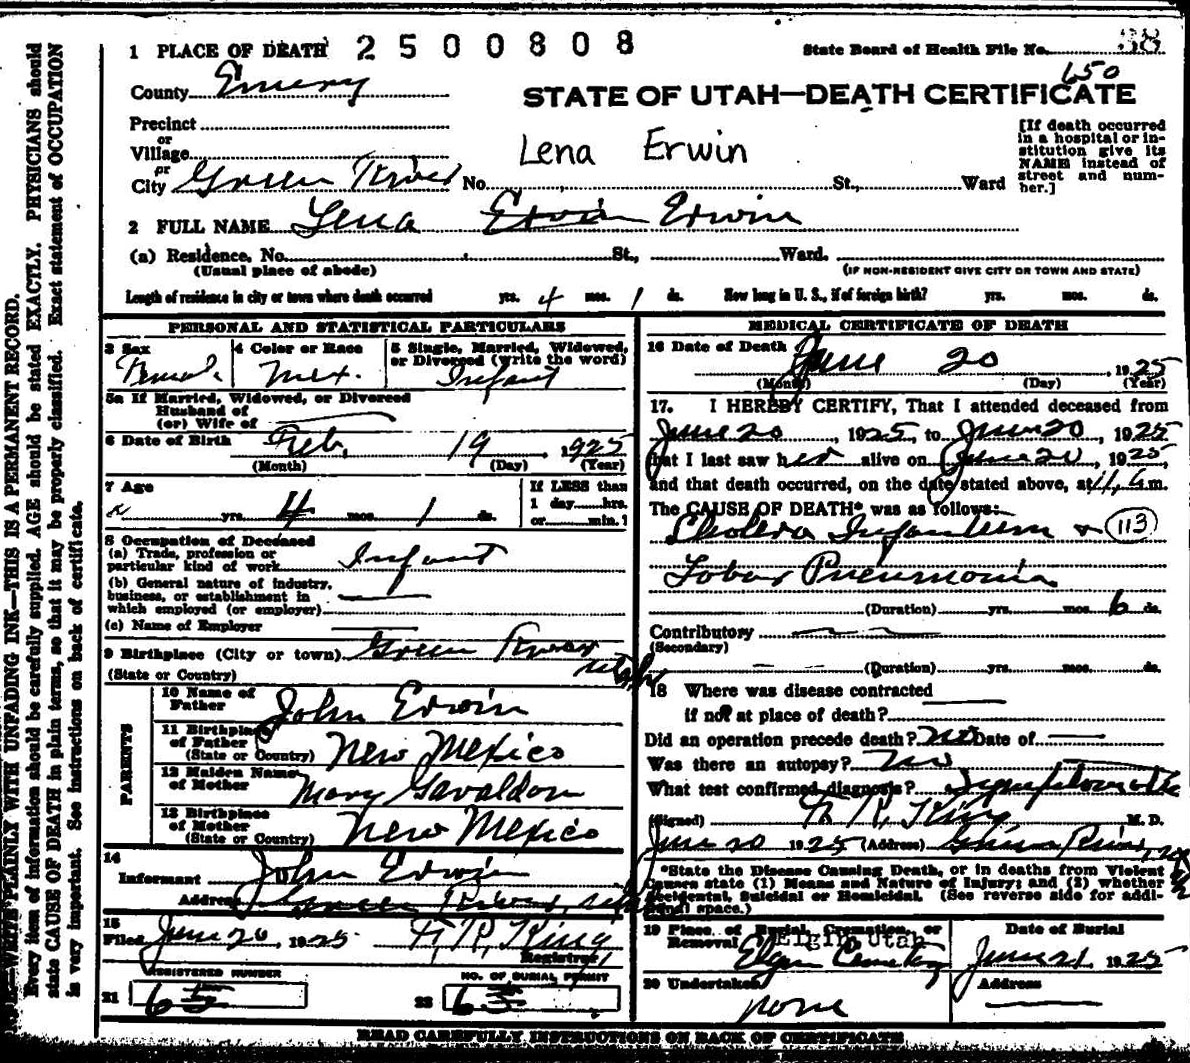 1 PLACE OF DEATH 2500808 State Board of Health File No. 38
650
County Emery
STATE OF UTAH—DEATH CERTIFICATE
Precinct
or
Village
or
City Green River No. St., Ward
[If death occurred
in a hospital or in-
stitution give its
NAME instead of
street and num-
ber.]
Lena Erwin
2 FULL NAME Lena Erwin Erwin
(a) Residence, No. St., Ward.
(Usual place of abode) (IF NON-RESIDENT GIVE CITY OR TOWN AND STATE)
Length of residence in city or town where death occurred yrs. 4 mos. 1 ds. How long in U. S., if of foreign birth? yrs. mos. ds.
PERSONAL AND STATISTICAL PARTICULARS
3 Sex 4 Color or Race 5 Single, Married, Widowed,
or Divorced (write the word)
Femal. Mex. Infant
5a If Married, Widowed, or Divorced
Husband of
(or) Wife of
6 Date of Birth Feb. 19, 1925
(Month) (Day) (Year)
7 Age
yrs. 4 mos. 1 ds.
If LESS than
1 day hrs.
or min.?
8 Occupation of Deceased
(a) Trade, profession or
particular kind of work Infant
(b) General nature of industry,
business, or establishment in
which employed (or employer)
(c) Name of Employer
9 Birthplace (City or town) Green River
(State or Country) Utah
PARENTS
10 Name of
Father John Erwin
11 Birthplace
of Father
(State or Country) New Mexico
12 Maiden Name
of Mother Mary Gavaldon
13 Birthplace
of Mother
(State or Country) New Mexico
14
Informant John Erwin
Address Green River, Utah
15
Filed June 20 1925 R. King
Registrar
REGISTERED NUMBER NO. OF BURIAL PERMIT
21 65 22 65
MEDICAL CERTIFICATE OF DEATH
16 Date of Death June 20, 1925
(Month) (Day) (Year)
17. I HEREBY CERTIFY, That I attended deceased from
June 20, 1925, to June 20, 1925
that I last saw her alive on June 20, 1925,
and that death occurred, on the date stated above, at 11, a m.
The CAUSE OF DEATH* was as follows:
Cholera Infantum & 113
Lobar Pneumonia
(Duration) yrs. mos. 6 ds.
Contributory
(Secondary)
(Duration) yrs. mos. ds.
18 Where was disease contracted
if not at place of death?
Did an operation precede death? No Date of
Was there an autopsy? No
What test confirmed diagnosis?
(Signed) R. King M. D.
June 20 1925 (Address) Green River,
*State the Disease Causing Death, or in deaths from Violent
Causes state (1) Means and Nature of Injury; and (2) whether
Accidental, Suicidal or Homicidal. (See reverse side for addi-
tional space.)
19 Place of Burial, Cremation, or
Removal Elgin Utah
Elgin Cemetery
Date of Burial
June 21, 1925
20 Undertaker
none
Address
READ CAREFULLY INSTRUCTIONS ON BACK OF CERTIFICATE
WRITE PLAINLY WITH UNFADING INK—THIS IS A PERMANENT RECORD.
Every item of information should be carefully supplied. AGE should be stated EXACTLY. PHYSICIANS should
state CAUSE OF DEATH in plain terms, so that it may be properly classified. Exact statement of OCCUPATION
is very important. See instructions on back of certificate.